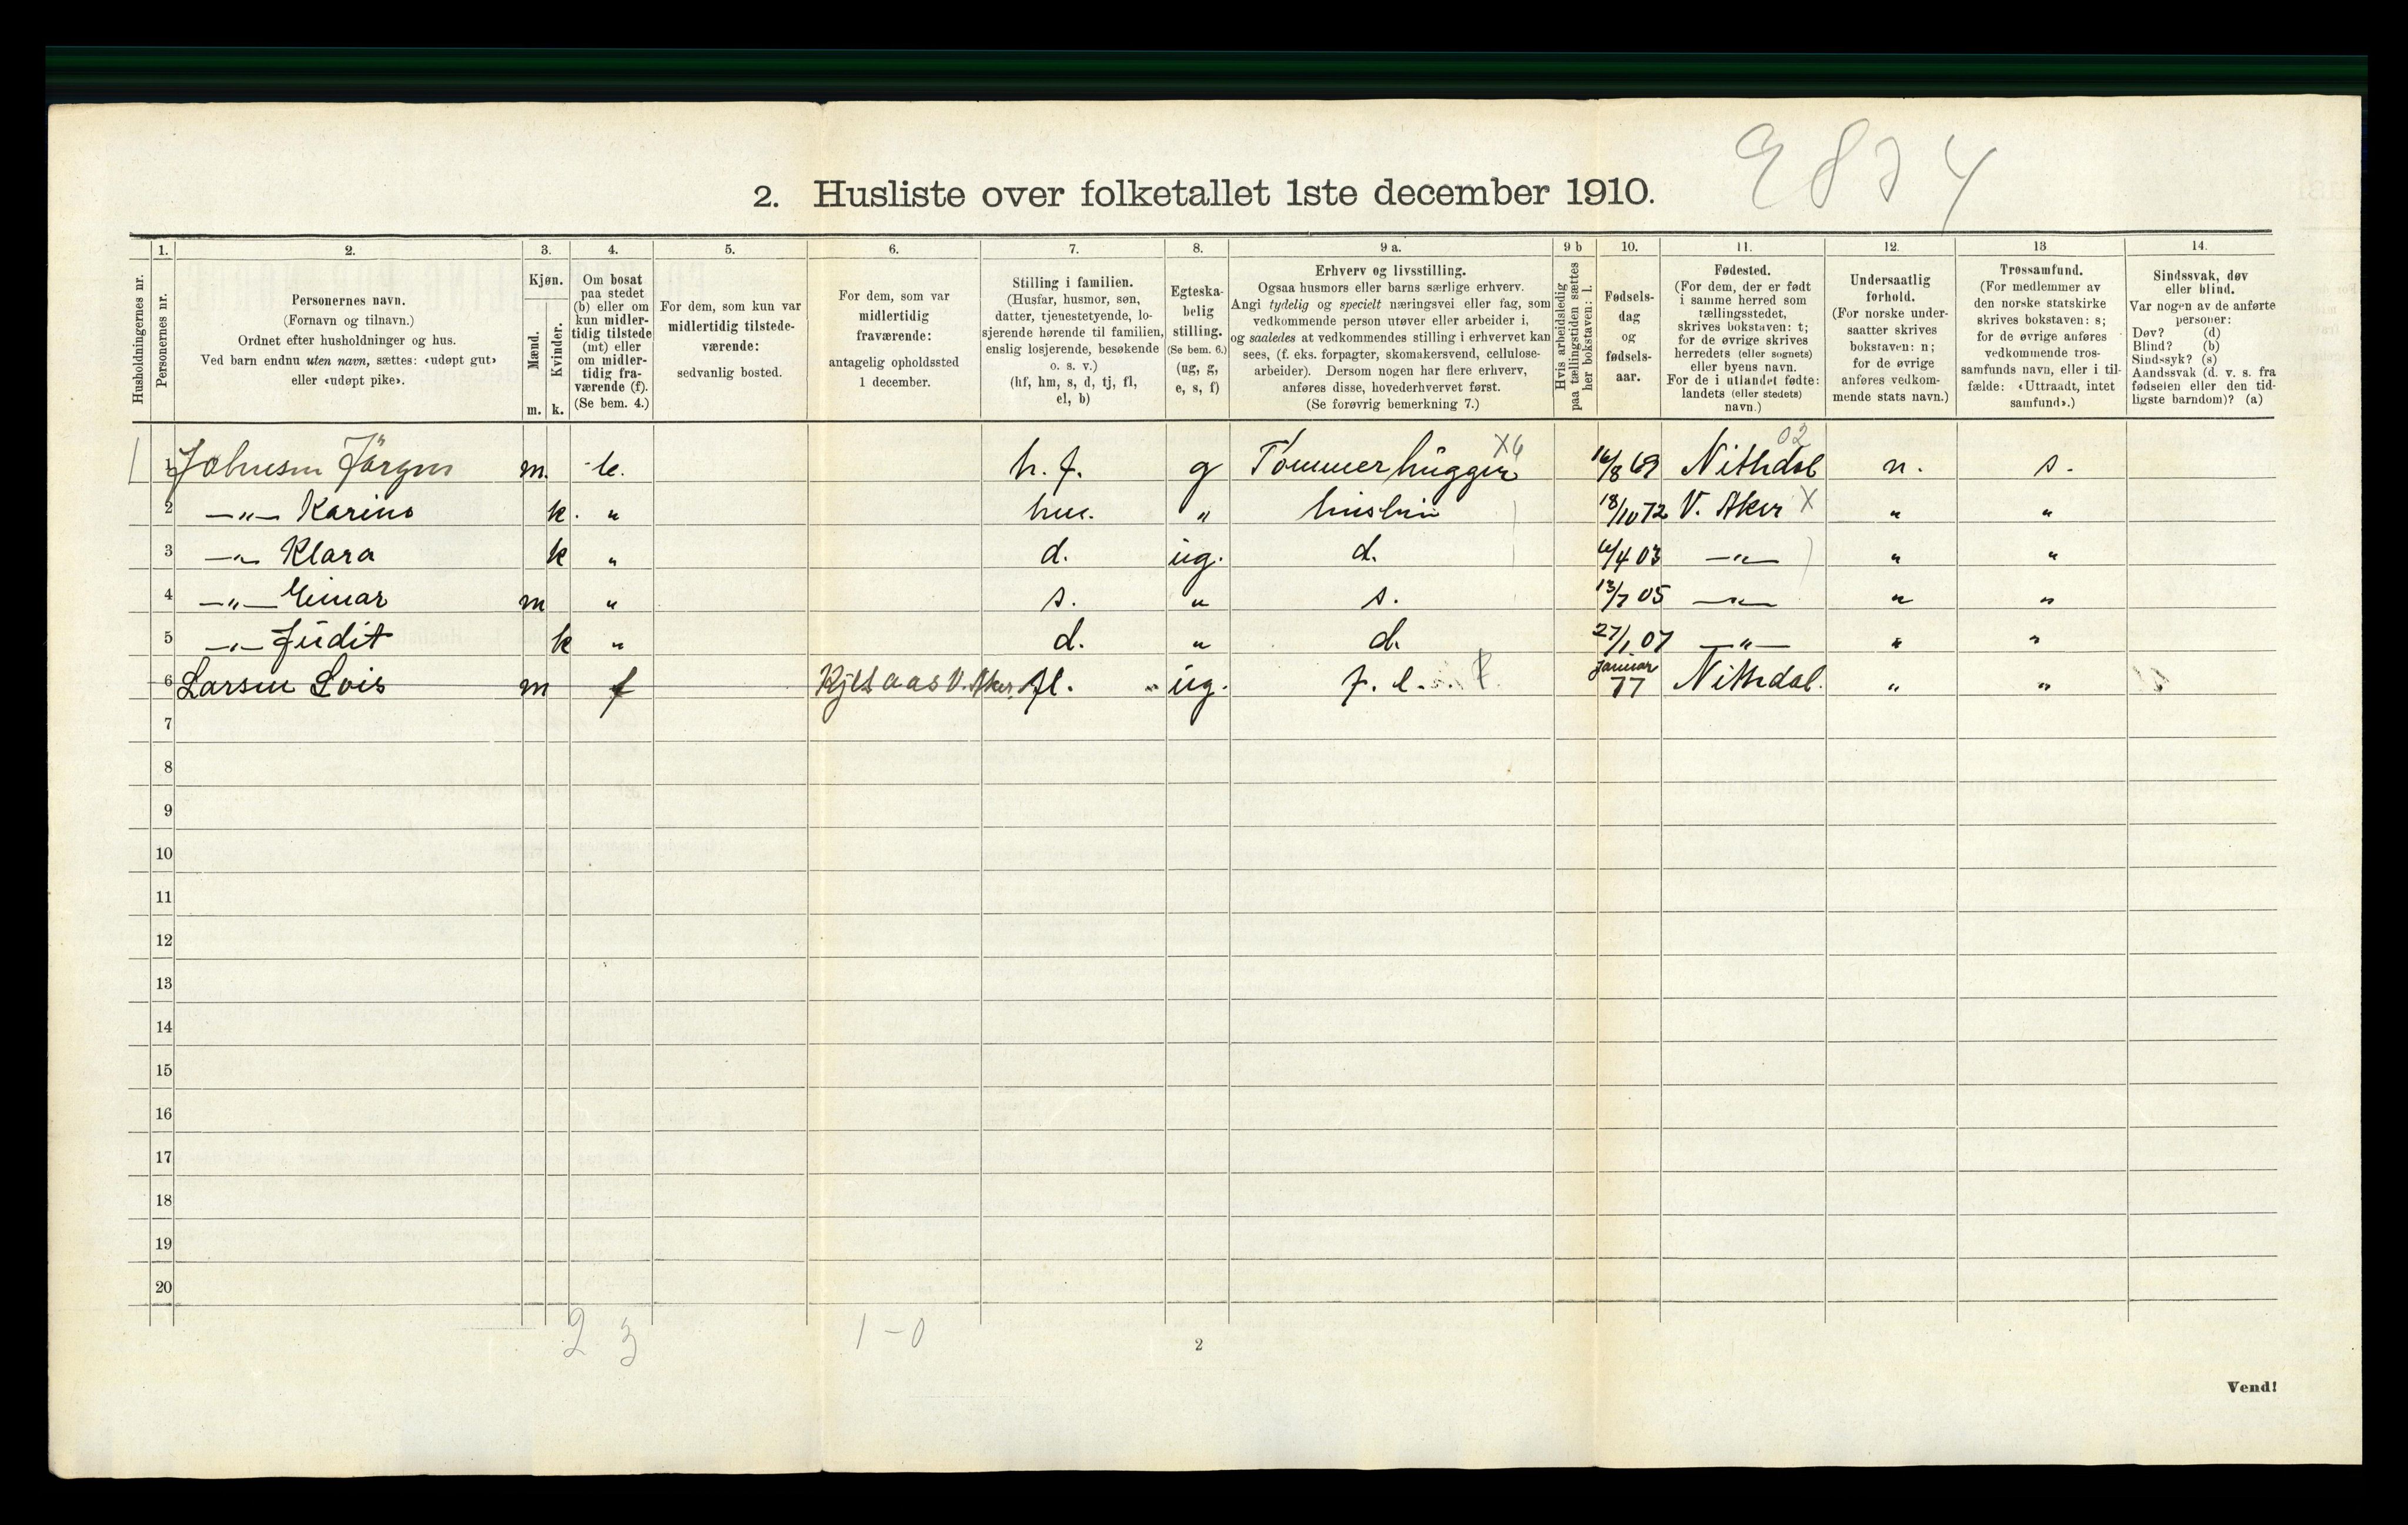 9874
2. Husliste over folketallet 1ste december 1910.
Husholdningernes nr.
1. Personernes nr.
2. Personernes navn.
(Fornavn og tilnavn.)
Ordnet efter husholdninger og hus.
Ved barn endnu uten navn, sættes: «udøpt gut»
eller «udøpt pike».
3. Kjøn.
Mænd. Kvinder.
m. k.
4. Om bosat
paa stedet
(b) eller om
kun midler-
tidig tilstede
(mt) eller
om midler-
tidig fra-
værende (f).
(Se bem. 4.)
5. For dem, som kun var
midlertidig tilstede-
værende:
sedvanlig bosted.
6. For dem, som var
midlertidig
fraværende:
antagelig opholdssted
1 december.
7. Stilling i familien.
(Husfar, husmor, søn,
datter, tjenestetyende, lo-
sjerende hørende til familien,
enslig losjerende, besøkende
o. s. v.)
(hf, hm, s, d, tj, fl,
el, b)
8. Egteska-
belig
stilling.
(Se bem. 6.)
(ug, g,
e, s, f)
9 a. Erhverv og livsstilling.
Ogsaa husmors eller barns særlige erhverv.
Angi tydelig og specielt næringsvei eller fag, som
vedkommende person utøver eller arbeider i,
og saaledes at vedkommendes stilling i erhvervet kan
sees, (f. eks. forpagter, skomakersvend, cellulose-
arbeider). Dersom nogen har flere erhverv,
anføres disse, hovederhvervet først.
(Se forøvrig bemerkning 7.)
9 b Hvis arbeidsledig
paa tællingstiden sættes
her bokstaven: l.
10. Fødsels-
dag
og
fødsels-
aar.
11. Fødested.
(For dem, der er født
i samme herred som
tællingsstedet,
skrives bokstaven: t;
for de øvrige skrives
herredets (eller sognets)
eller byens navn.
For de i utlandet fødte:
landets (eller stedets)
navn.)
12. Undersaatlig
forhold.
(For norske under-
saatter skrives
bokstaven: n;
for de øvrige
anføres vedkom-
mende stats navn.)
13 Trossamfund.
(For medlemmer av
den norske statskirke
skrives bokstaven: s;
for de øvrige anføres
vedkommende tros-
samfunds navn, eller i til-
fælde: «Uttraadt, intet
samfund».)
14. Sindssvak, døv
eller blind.
Var nogen av de anførte
personer:
Døv? (d)
Blind? (b)
Sindssyk? (s)
Aandssvak (d. v. s. fra
fødselen eller den tid-
ligste barndom)? (a)
1 Johnsen Jörgen m. b. h. f. g Tømmerhugger X6 16/8 69 Nithdal 02 n. s.
2 —"— Karine k. " hm. " 18/10 72 V. Aker X " "
3 —"— Klara k " d. ug. d. 6/4 03 —"— " "
4 —"— Einar m " s. " s. 13/7 05 —"— " "
5 —"— Judit k " d. " d. 27/1 07 —"— " "
6 Larsen Lois m f Kjelsaas V. Aker. fl. ug. f. l. januar 77 Nithdal. " "
7
8
9
10
11
12
13
14
15
16
17
18
19
20
2 3 1-0
2
Vend!